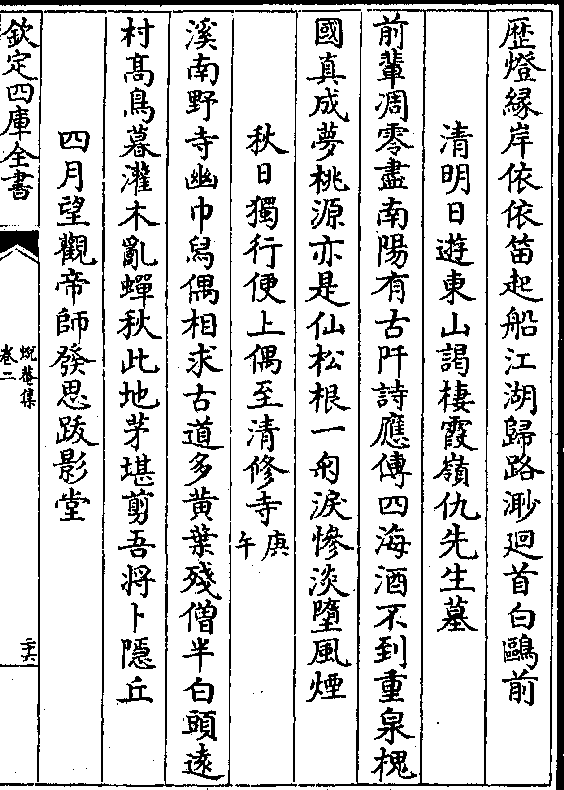 歴燈緣岸依依笛起船江湖歸路渺迴首白鷗前
清明日遊東山謁棲霞嶺仇先生墓
前輩凋零盡南陽有古阡詩應傳四海酒不到重泉槐
國真成夢桃源亦是仙松根一匊淚慘淡墮風煙
秋日獨行便上偶至清修寺庚午
溪南野寺幽巾舄偶相求古道多黄葉殘僧半白頭遠
村髙鳥暮灌木亂蟬秋此地茅堪剪吾将卜隱丘
四月望觀帝師發思跋影堂
欽定四庫全書
蛻菴集
卷二
二十六